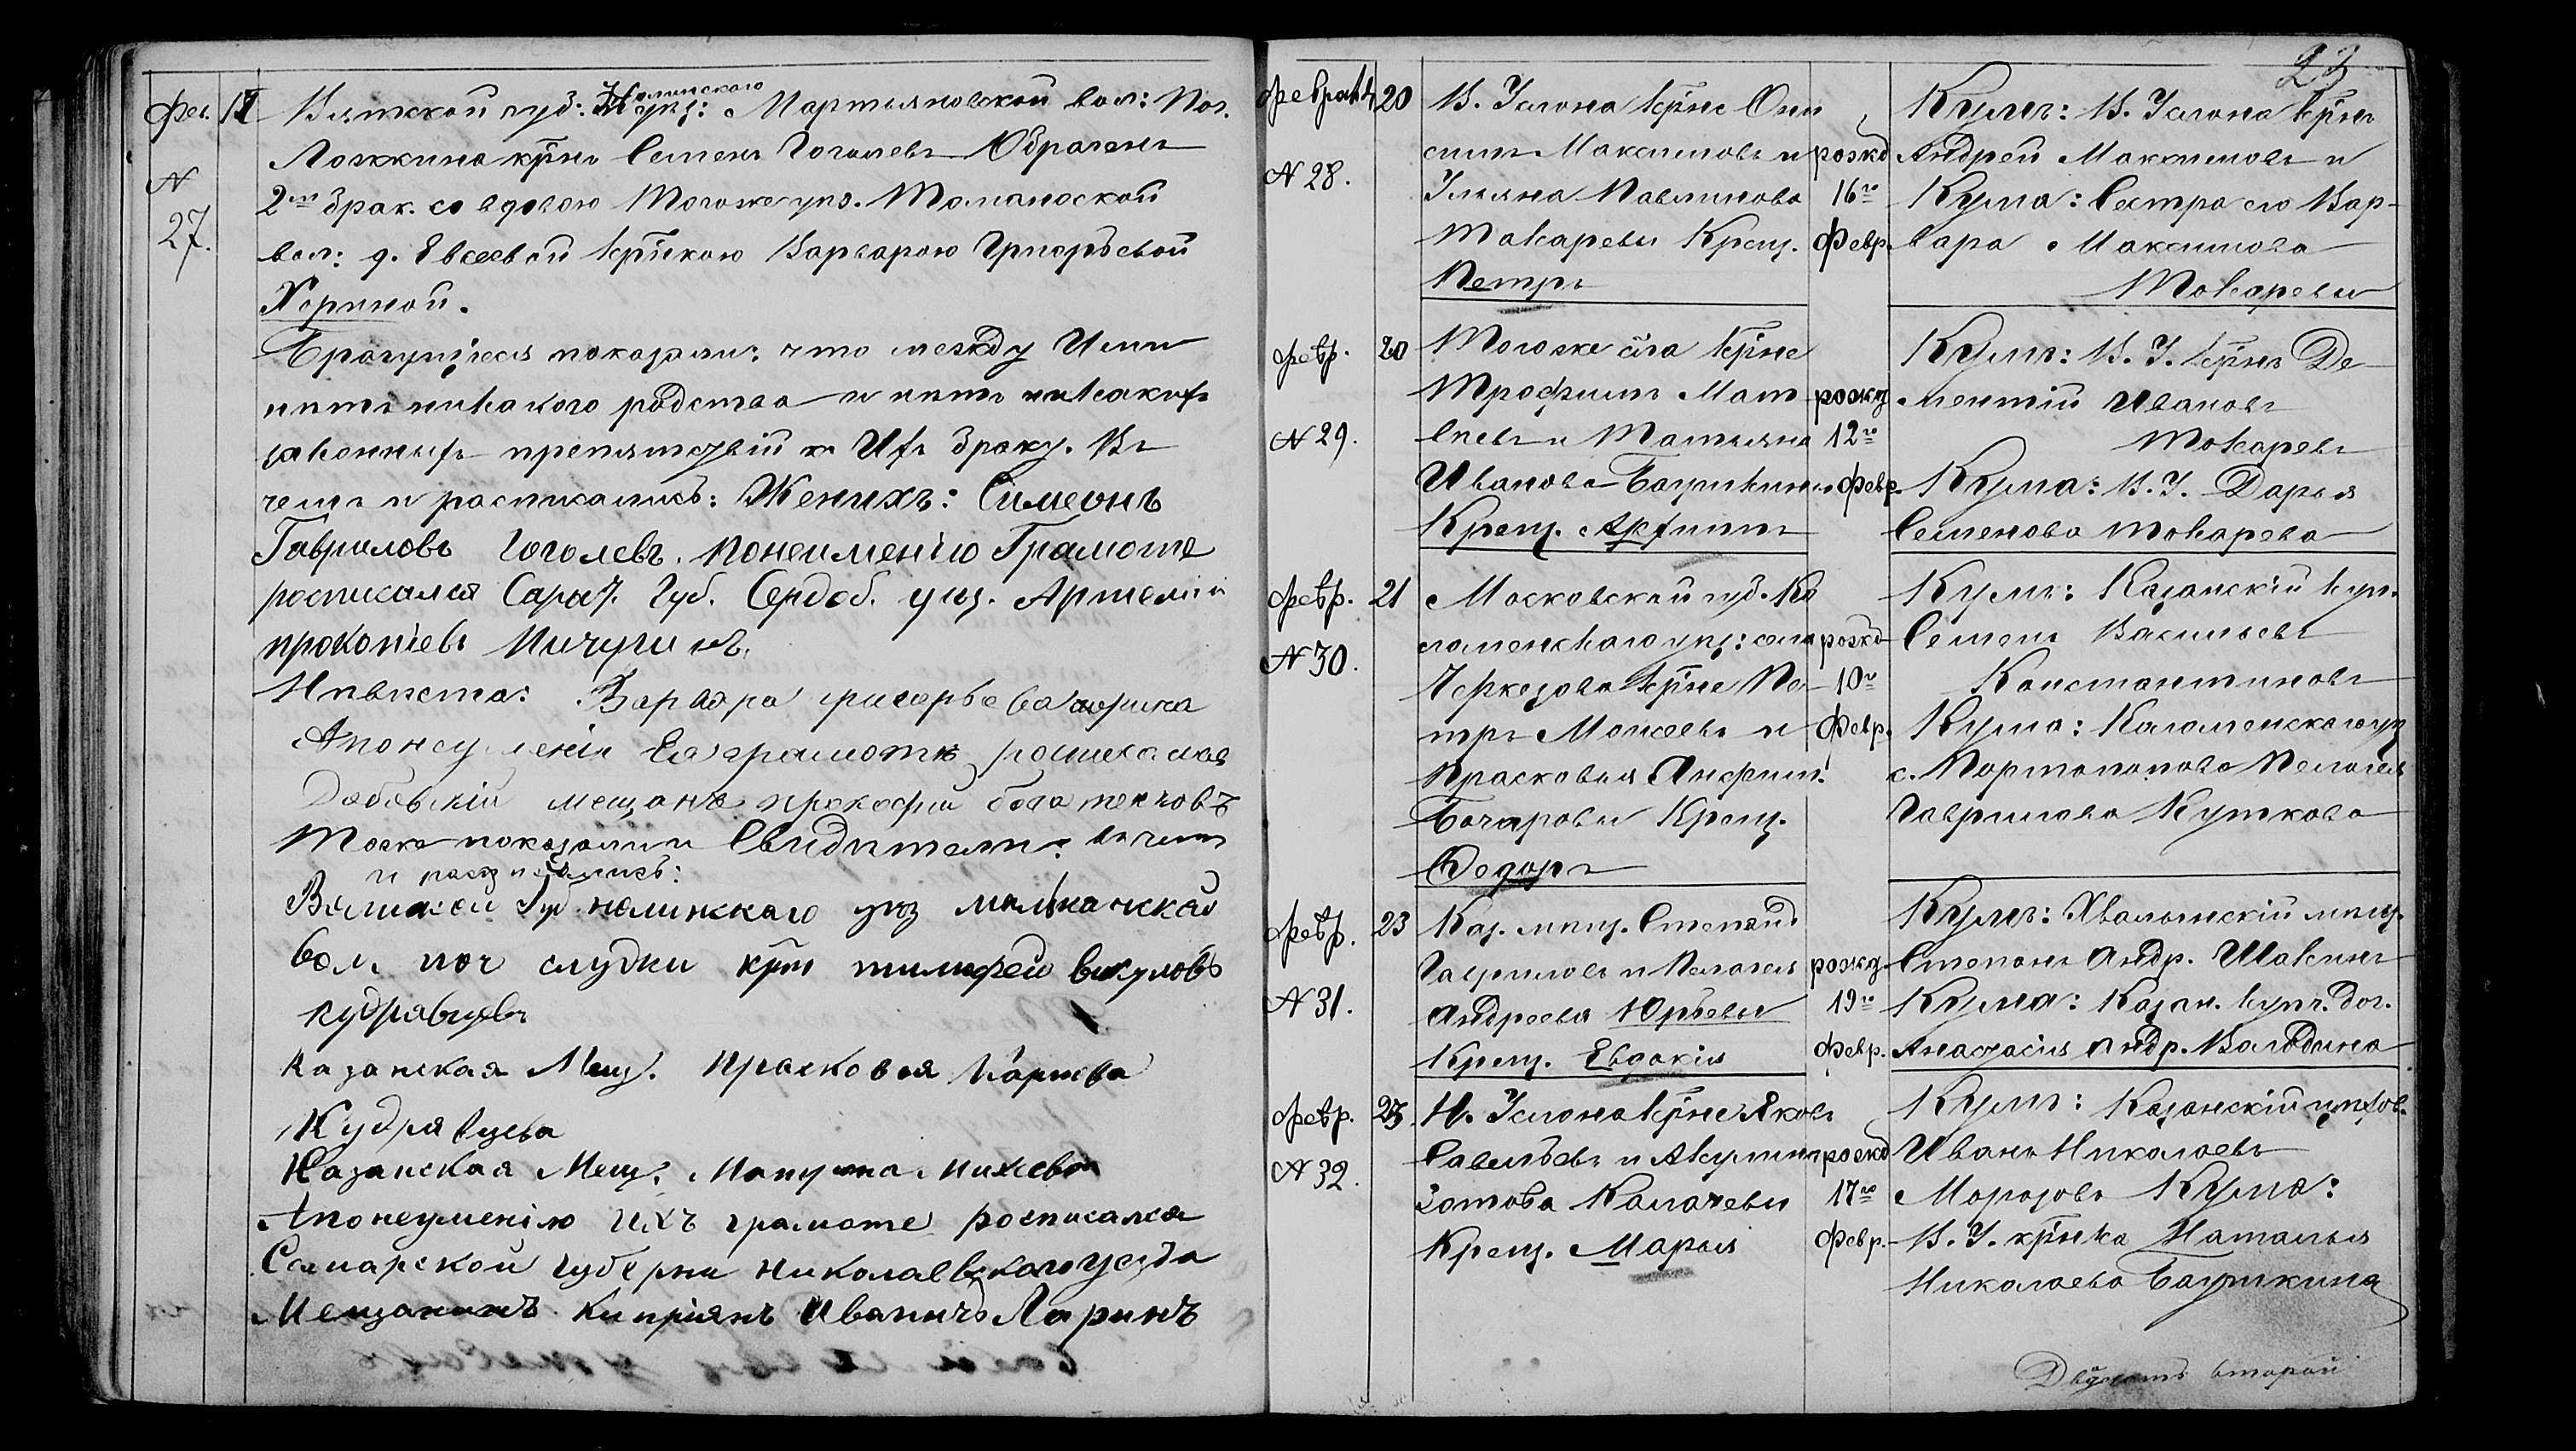 Фев. 17 Вятской губ: Нолинского уѣз: Мартыновской вол: Поч.
Ложкина крн̃ъ Семенъ Гоголевъ Юбраченъ
N 27. 2мъ брак. со вдовою Тогоже уѣз. Томанаской
вол: д. Евсеевой крн̃кою Варварою Григорьевой
Хориной.
Брачущіеся показали: что между Ими
нѣтъ никакого родства и нѣтъ никакихъ
законныхъ препятствій къ Ихъ браку. Въ
чемъ и расписались: Женихъ: Симеонъ
Гавриловъ Гоголевъ. Понеименію Грамоте
росписался Сарат. Губ. Сердоб. уѣз. Артемий
прокопіевъ Мичуринъ.
Нѣвѣста: Варвара григорьева хорина
Апонеуменія Ея грамотѣ росписался
мещанъ прокофи
Тоже показали и Свидѣтели: въ чемъ
и расписались:
Вятской Губ нолинскаго уез
вол поч слудки крн̃ тимофей викуловъ
кудрявцевъ
Казанская Мещ. Прасковья Карпова
Кудрявцева
Казанская Мещ. Матрона Михеева
Апонеуменію ИХЪ грамоте росписался
Самарской губерни николаевскаго уезда
Мещанинъ Кипріянъ Иваничъ Ларинъ
23
Февраль 20 В. Услона крн̃е Они
симъ Максимовъ и
N 28. Ульяна Павлинова
Токаревы Крещ.
Петръ
рожд
16го
Февр.
Кумъ: В. Услона крн̃ъ
Андрей Максимовъ и
Кума: Сестра его Вар-
вара Максимова
Токаревы
Февр. 20 Тогоже с̃ла крн̃е
Трофимъ Мат
N 29. вѣевъ и Татьяна
Иванова Баушкины
Крещ. Арефимъ
рожд
12го
Февр.
Кумъ: В. У. крн̃ъ Де
ментій Ивановъ
Токаревъ
Кума: В. У. Дарья
Семенова Токарева
Февр. 21 Московской губ. Ко
ломенскаго уѣз: села
N 30. Черкезова крн̃е Пе
тръ Моисеевъ и
Прасковья Анфим.
Бочаровы Крещ.
Федоръ
рожд
10го
Февр.
Кумъ: Казанскій куп.
Семенъ Васильевъ
Константиновъ
Кума: Коломенскаго уѣз
с. Портопопово Пелагея
Гаврилова Куткова
Февр. 23 Каз. мѣщ. Степанъ
Гавриловъ и Пелагея
N 31. Андреева Юрьевы
Крещ. Евдокія
рожд
19го
Февр.
Кумъ: Хвалынскій мѣщ.
Степанъ Андр. Шавинъ
Кума: Казан. купч. доч.
Анастасія Андр. Володина
Февр. 23 Н. Услона крн̃е Яковъ
Савельевъ и Акулина
N 32. Зотова Калачевы
Крещ. Марья
рожд
17го
Февр.
Кумъ: Казанскій цѣхов.
Иванъ Николаевъ
Морозовъ Кума:
В. У. крн̃ка Наталья
Николаева Баушкина
Двадцать второй